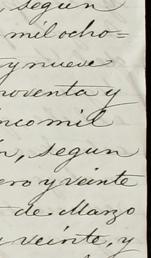 , segun
mil ocho=
y nueve
noventa y
inco mil
n, segun
ero y veinte
de Marzo
veinte, y